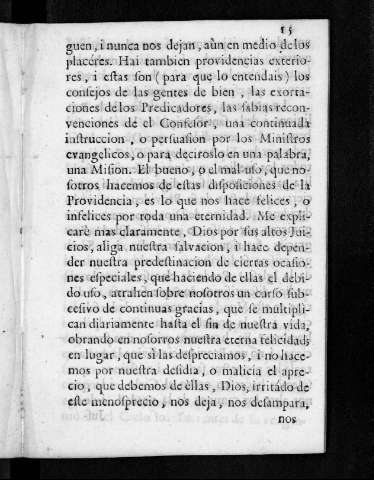 15
guen, i nunca nos dejan, aùn en medio de los
placeres. Hai tambien providencias exterio-
res, i estas son (para que lo entendais) los
consejos de las gentes de bien, las exorta-
ciones de los Predicadores, las sabias recon-
venciones de el Confesor, una continuada
instruccion, o persuasion por los Ministros
evangelicos, o para deciroslo en una palabra,
una Mision. El bueno, o el mal uso, que no-
sotros hacemos de estas disposiciones de la
Providencia, es lo que nos hace felices, o
infelices por toda una eternidad. Me expli-
carè mas claramente, Dios por sus altos Jui-
cios, aliga nuestra salvacion, i hace depen-
der nuestra predestinacion de ciertas ocasio-
nes especiales, que haciendo de ellas el debi-
do uso, atrahen sobre nosotros un curso sub-
cesivo de continuas gracias, que se multipli-
can diariamente hasta el fin de nuestra vida,
obrando en nosotros nuestra eterna felicidad;
en lugar, que si las despreciamos, i no hace-
mos por nuestra desidia, o malicia el apre-
cio, que debemos de ellas, Dios, irritado de
este menosprecio, nos deja, nos desampara,
nos